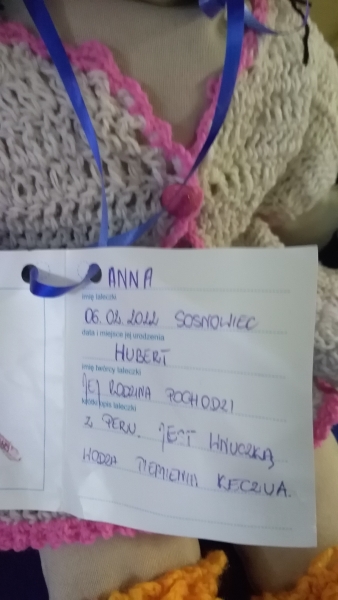 ANNA
imię laleczki
06.02.2022 SOSNOWIEC
data i miejsce jej urodzenia
HUBERT
imię twórcy laleczki
JEJ RODZINA POCHODZI
krótki opis laleczki
Z PERU. JEST WNUCZKĄ
WODZA PLEMIENIA KECZUA.